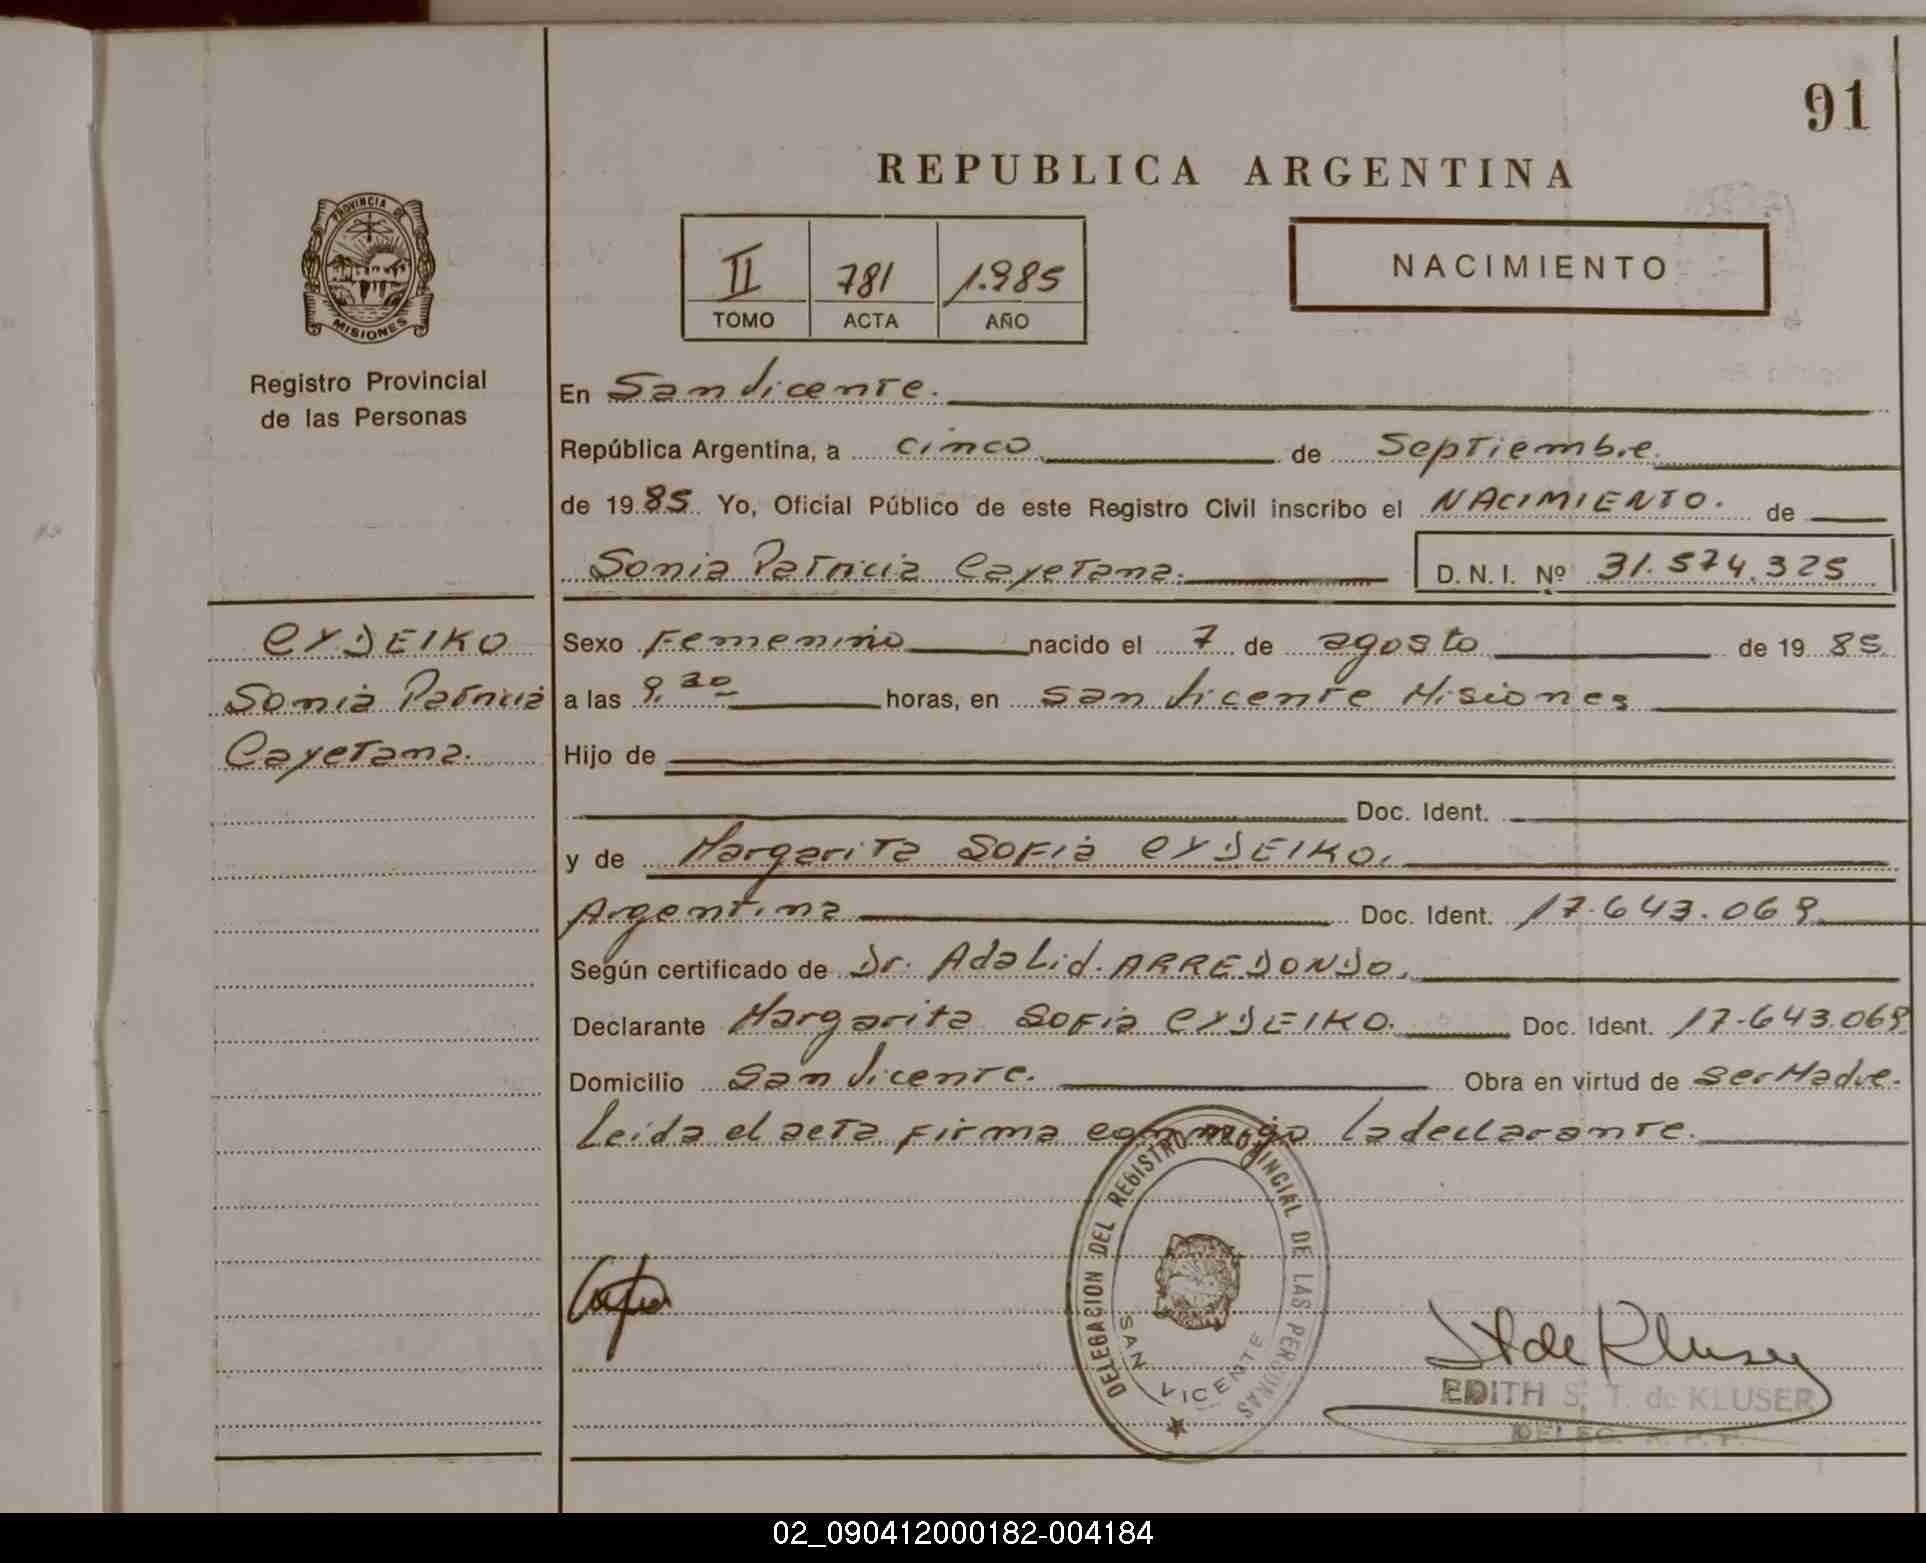 91
REPUBLICA ARGENTINA
PROVINCIA DE
MISIONES
II 781 1.985
TOMO ACTA AÑO
NACIMIENTO
Registro Provincial
de las Personas
En San Vicente.
República Argentina, a cinco de Septiembre.
de 1985. Yo, Oficial Público de este Registro Civil inscribo el NACIMIENTO. de
Sonia Patricia Cayetana. D. N. I. Nº 31.574.325
EYDEIKO
Sonia Patricia
Cayetana.
Sexo Femenino nacido el 7 de agosto de 1985
a las 9,30 horas, en San Vicente Misiones
Hijo de
Doc. Ident.
y de Margarita Sofia EYDEIKO.
Argentina Doc. Ident. 17.643.069
Según certificado de Dr. Adalid. ARREDONDO.
Declarante Margarita Sofia EYDEIKO. Doc. Ident. 17.643.069
Domicilio San Vicente. Obra en virtud de Ser Madre.
Leida el acta firma conmigo la declarante.
DELEGACION DEL REGISTRO PROVINCIAL DE LAS PERSONAS
SAN VICENTE
St de Kluser
EDITH S. T. de KLUSER
DELEG. R. P. P.
02_090412000182-004184